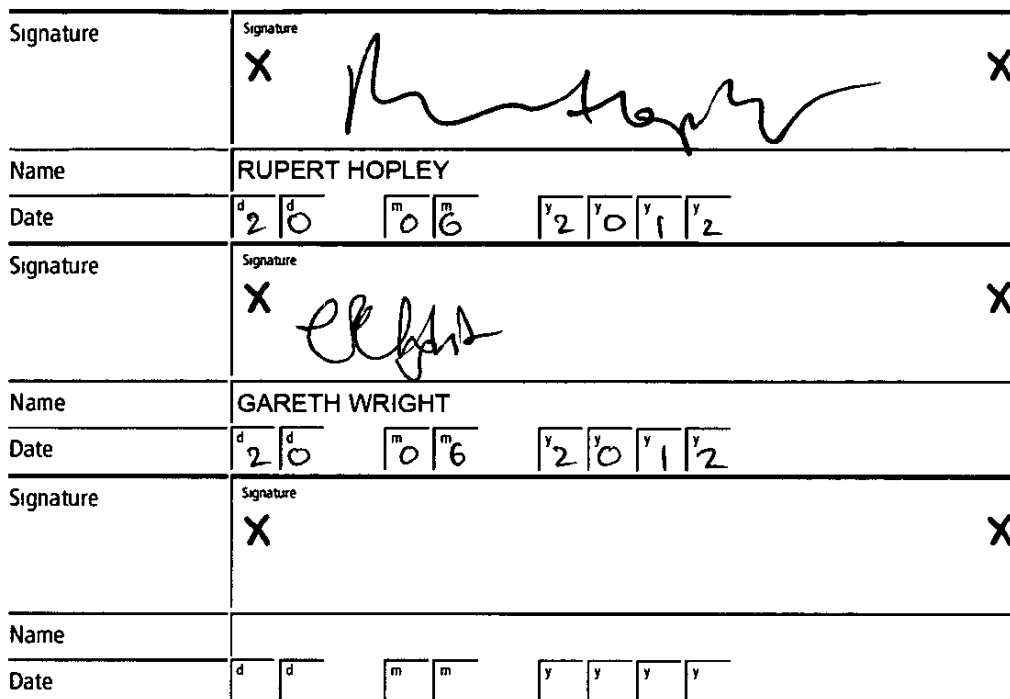 Signature
Signature
X X
Name RUPERT HOPLEY
Date d 2 d 0 m 0 m 6 y 2 y 0 y 1 y 2
Signature
Signature
X X
Name GARETH WRIGHT
Date d 2 d 0 m 0 m 6 y 2 y 0 y 1 y 2
Signature
Signature
X X
Name
Date d d m m y y y y